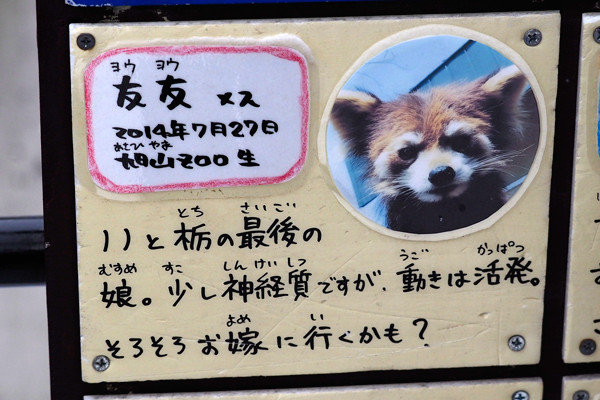 ヨウ ヨウ
友友 メス
2014年7月27日
あさひ やま
旭山ZOO 生
とち さいご
ノノと栃の最後の
むすめ すこ しんけいしつ うご かっぱつ
娘。少し神経質ですが、動きは活発。
よめ い
そろそろお嫁に行くかも?